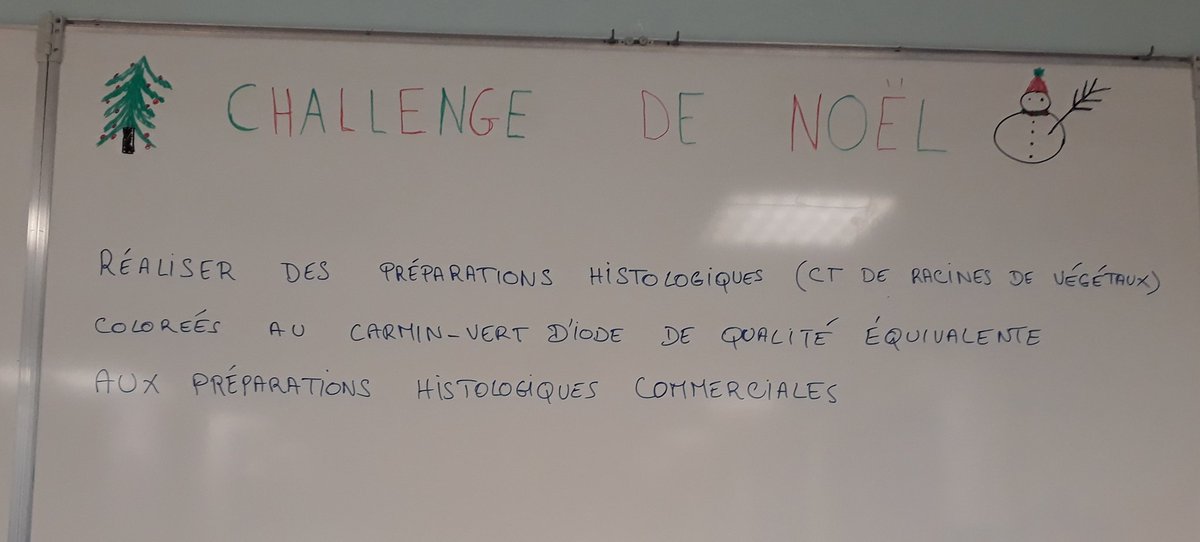 CHALLENGE DE NOËL
RÉALISER DES PRÉPARATIONS HISTOLOGIQUES (CT DE RACINES DE VÉGÉTAUX)
COLOREÉS AU CARMIN-VERT D'IODE DE QUALITÉ ÉQUIVALENTE
AUX PRÉPARATIONS HISTOLOGIQUES COMMERCIALES